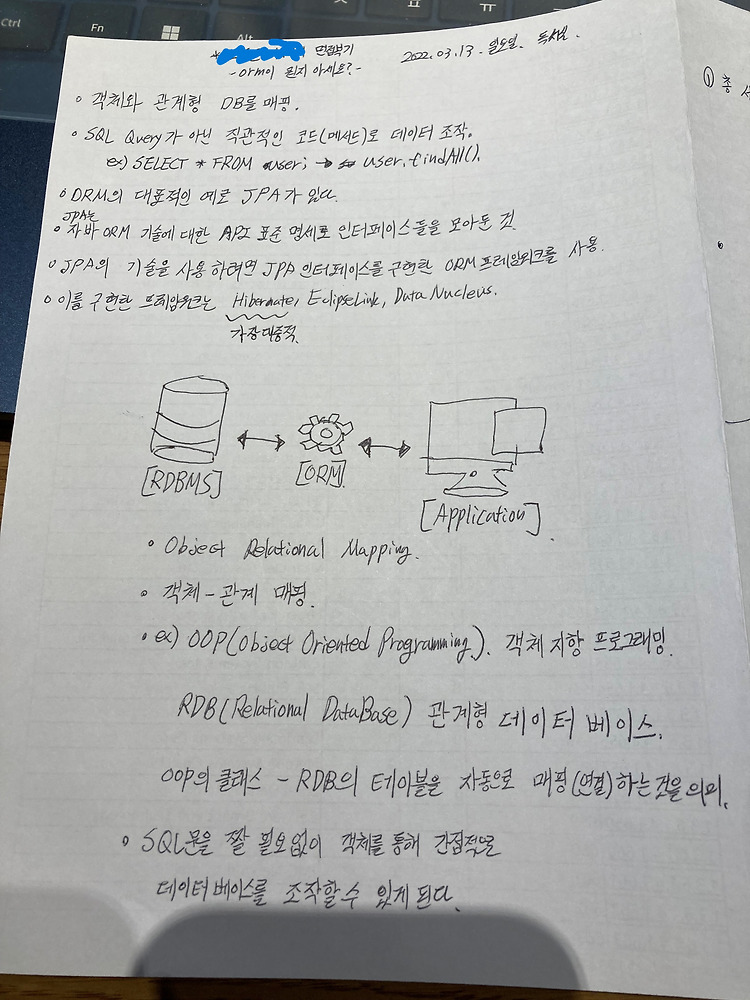 Ctrl
Fn
Alt
* 면접보기
2022.03.13. 일요일. 독서실.
-orm이 뭔지 아세요?-
① 총 서
◦ 객체와 관계형 DB를 매핑.
◦ SQL Query가 아닌 직관적인 코드(메서드)로 데이터 조작.
ex) SELECT * FROM user; → user.findAll().
◦ ORM의 대표적인 예로 JPA가 있다.
JPA는
◦ 자바 ORM 기술에 대한 API 표준 명세로 인터페이스들을 모아둔 것.
◦ JPA의 기술을 사용하려면 JPA 인터페이스를 구현한 ORM 프레임워크를 사용.
◦ 이를 구현한 프레임워크는 Hibernate, EclipseLink, Data Nucleus.
가장 대중적.
[RDBMS] [ORM] [Application].
◦ Object Relational Mapping.
◦ 객체-관계 매핑.
◦ ex) OOP(Object Oriented Programming). 객체 지향 프로그래밍.
RDB(Relational DataBase) 관계형 데이터 베이스.
OOP의 클래스 - RDB의 테이블을 자동으로 매핑(연결)하는것을 의미.
◦ SQL문을 짤 필요없이 객체를 통해 간접적으로
데이터베이스를 조작할 수 있게 된다.